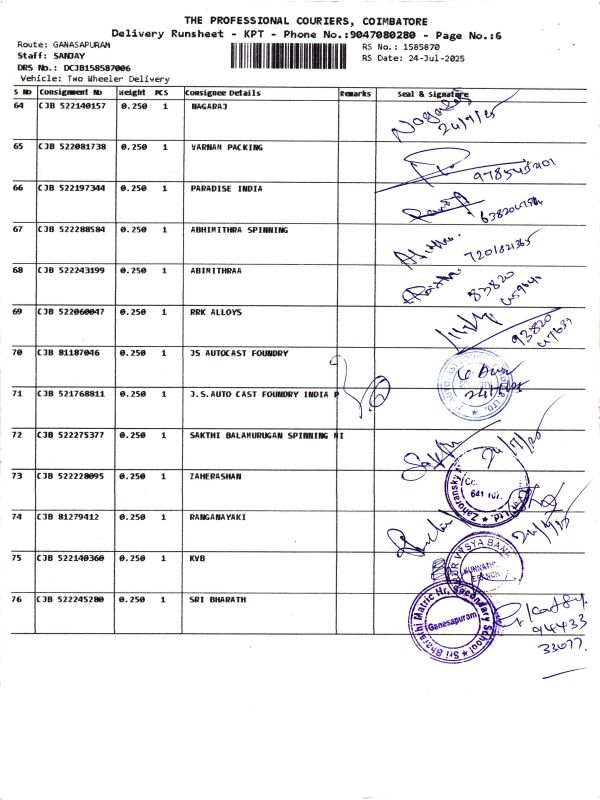 THE PROFESSIONAL COURIERS, COIMBATORE
Delivery Runsheet - KPT - Phone No.:9047080280 - Page No.:6
Route: GANASAPURAM
RS No.: 1585870
Staff: SANJAY
RS Date: 24-Jul-2025
DRS No.: DCJB158587006
Vehicle: Two Wheeler Delivery
S No Consignment No Weight PCS Consignee Details Remarks Seal & Signature
64 CJB 522140157 0.250 1 NAGARAJ
Nagaraj
24/7/25
65 CJB 522081738 0.250 1 VARNAM PACKING
66 CJB 522197344 0.250 1 PARADISE INDIA
67 CJB 522288584 0.250 1 ABHIMITHRA SPINNING
7201821365
68 CJB 522243199 0.250 1 ABIMITHRAA
83820
69 CJB 522060047 0.250 1 RRK ALLOYS
93820
70 CJB 81187046 0.250 1 JS AUTOCAST FOUNDRY
71 CJB 521768811 0.250 1 J.S.AUTO CAST FOUNDRY INDIA P
72 CJB 522275377 0.250 1 SAKTHI BALAMURUGAN SPINNING MI
24/7/25
73 CJB 522228095 0.250 1 ZAHERASHAN
Zahoransky
Ltd.
641 107.
74 CJB 81279412 0.250 1 RANGANAYAKI
75 CJB 522140360 0.250 1 KVB
VYSYA BANK
BRANCH
76 CJB 522245280 0.250 1 SRI BHARATH
Sri Bharathi Matric Hr. Secondary School
Ganesapuram
94433
33077.